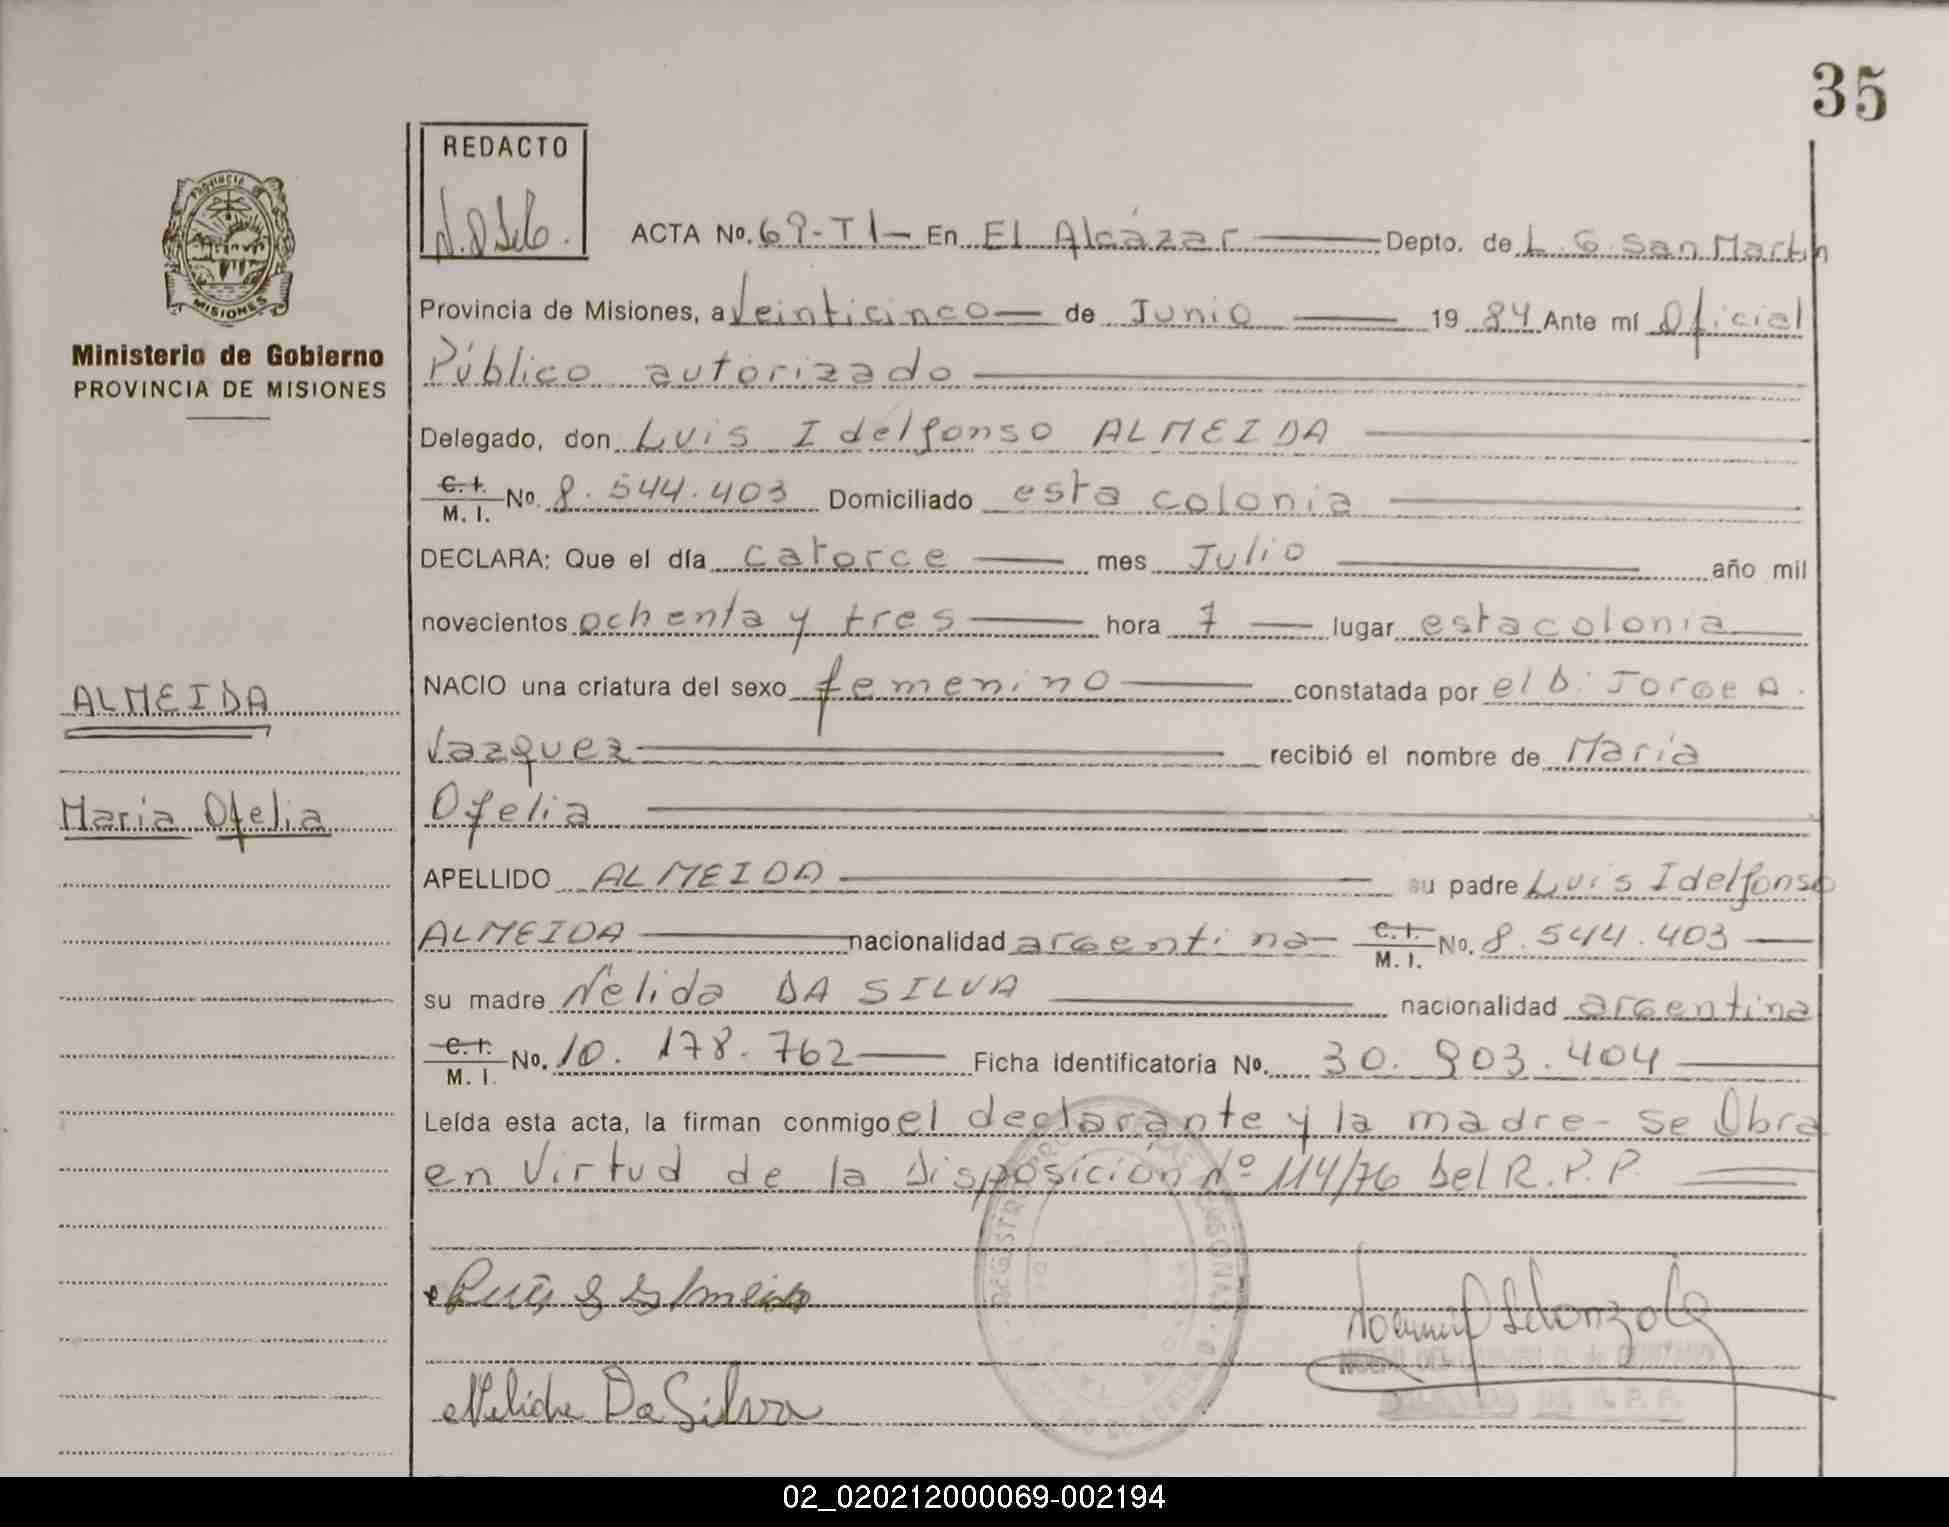 35
REDACTO
ACTA Nº. 69-T I- En El Alcázar Depto. de L. G. San Martín
Provincia de Misiones, a Veinticinco de Junio 19 84 Ante mí Oficial
Público autorizado
Delegado, don Luis Idelfonso ALMEIDA
C. I. M. I. Nº. 8.544.403 Domiciliado esta colonia
DECLARA: Que el día catorce mes Julio año mil
novecientos ochenta y tres hora 7 lugar esta colonia
NACIO una criatura del sexo femenino constatada por el D. Jorge A.
Vazquez recibió el nombre de María
Ofelia
APELLIDO ALMEIDA su padre Luis Idelfonso
ALMEIDA nacionalidad argentina C. I. M. I. Nº. 8.544.403
su madre Nélida DA SILVA nacionalidad argentina
C. I. M. I. Nº. 10.178.762 Ficha identificatoria Nº. 30.903.404
Leída esta acta, la firman conmigo el declarante y la madre - Se Obra
en Virtud de la Disposición Nº 114/76 del R.P.P.
Nelida Da Silva
PROVINCIA
MISIONES
Ministerio de Gobierno
PROVINCIA DE MISIONES
ALMEIDA
María Ofelia
02_020212000069-002194